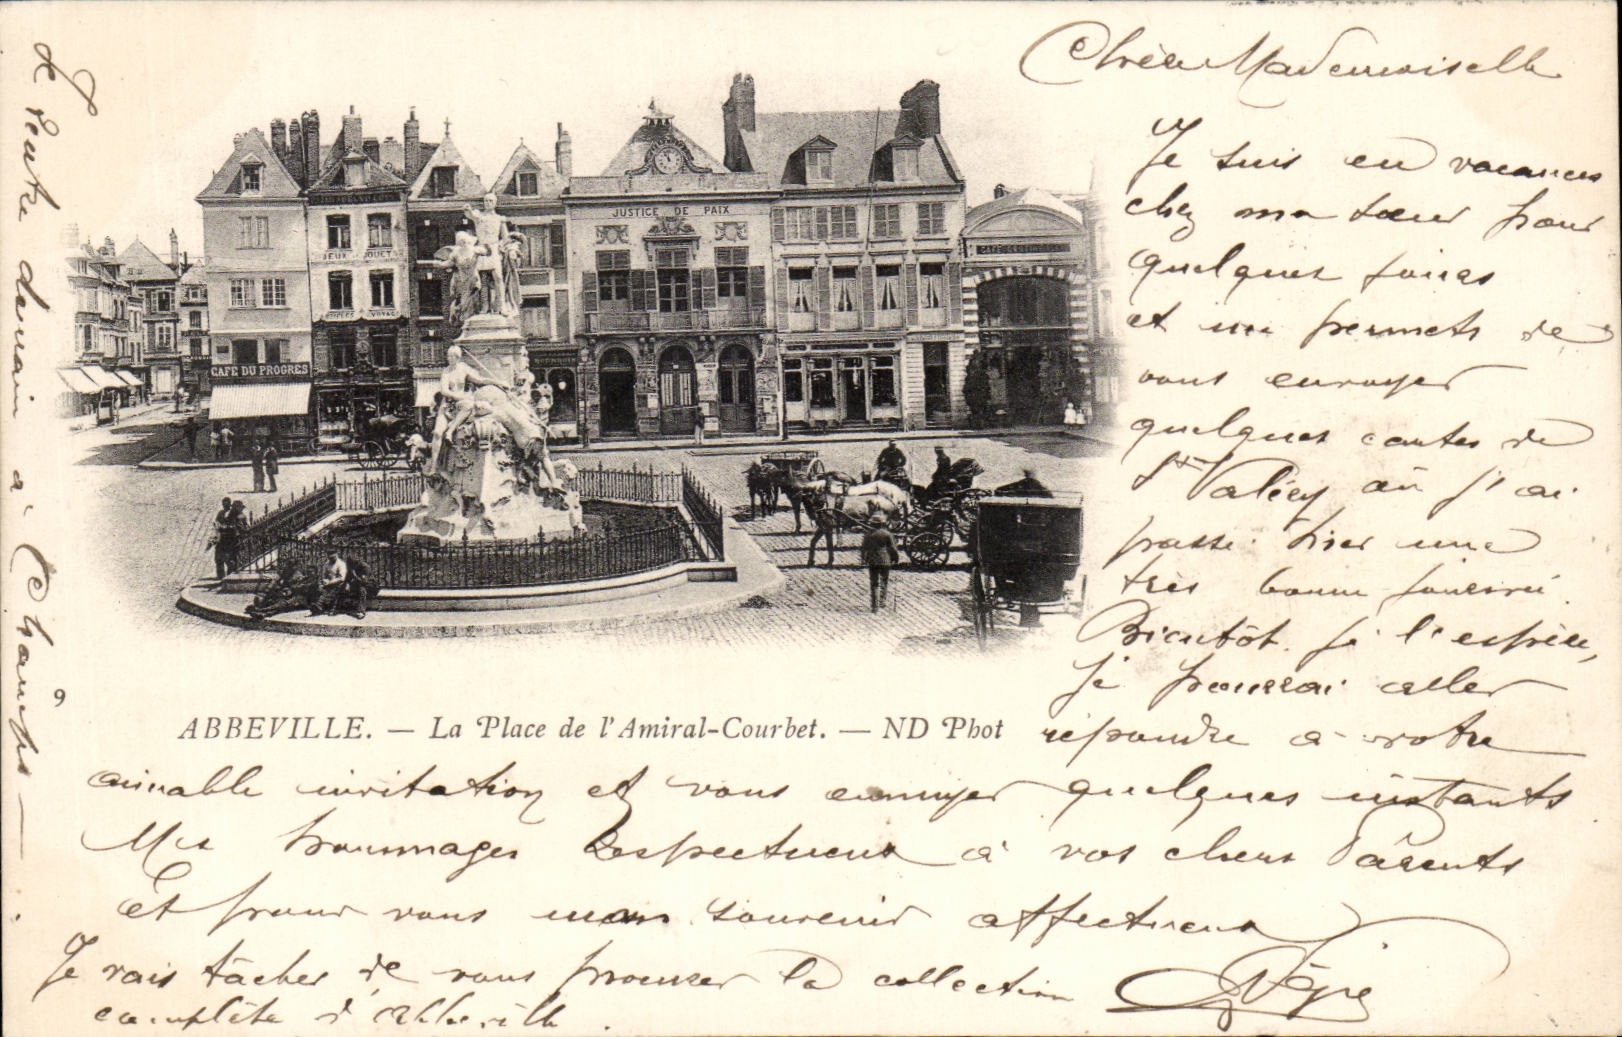 Chère Mademoiselle
Je suis en vacances
chez ma sœur pour
quelques jours
et me permets de
vous envoyer
quelques cartes de
St Valéry où j'ai
passé hier une
très bonne journée.
Bientôt, je l'espère,
je pourrai aller
répondre à votre
aimable invitation et vous ennuyer quelques instants
Mes hommages Respectueux à vos chers Parents
Et pour vous mon souvenir affectueux
Je vais tâcher de vous procurer la collection
complète d'Abbeville.
Je rentre demain à Champs
9
JUSTICE DE PAIX
JEUX JOUETS
CAFÉ DU PROGRES
ABBEVILLE. — La Place de l'Amiral-Courbet. — ND Phot